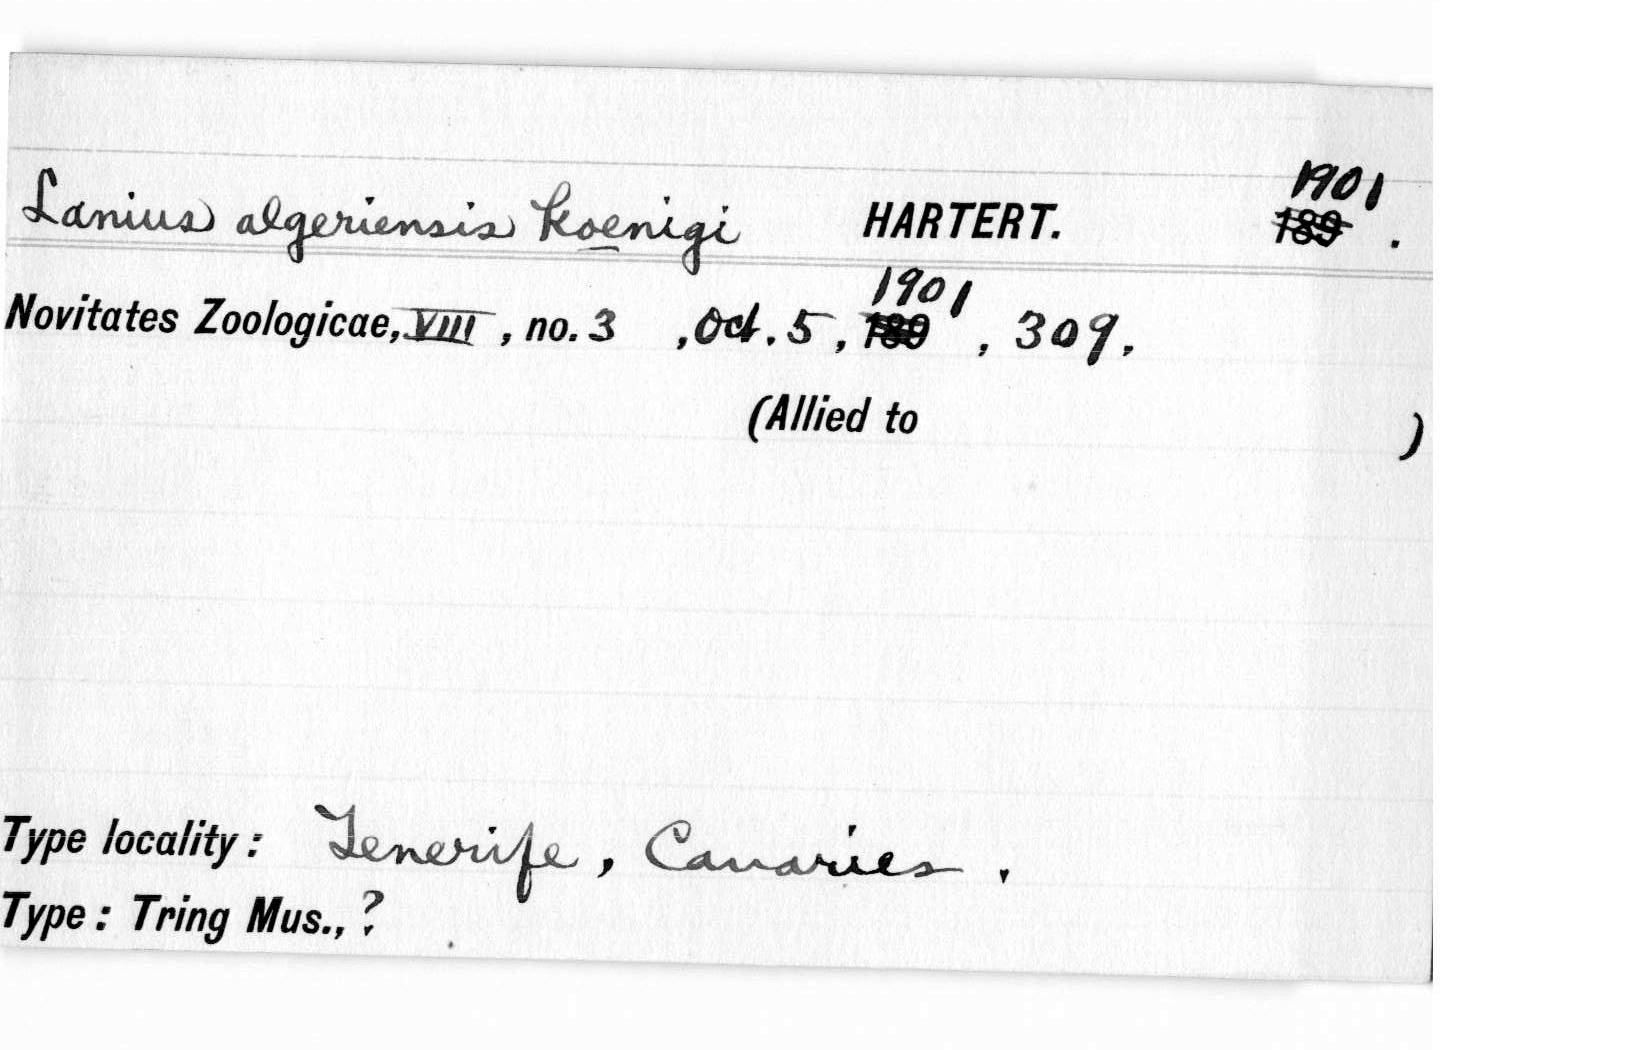 Lanius algeriensis koenigi HARTERT. 1901 189 .
Novitates Zoologicae, VIII, no. 3 , Oct. 5, 1901 189 , 309.
(Allied to )
Type locality: Tenerife, Canaries.
Type: Tring Mus., ?